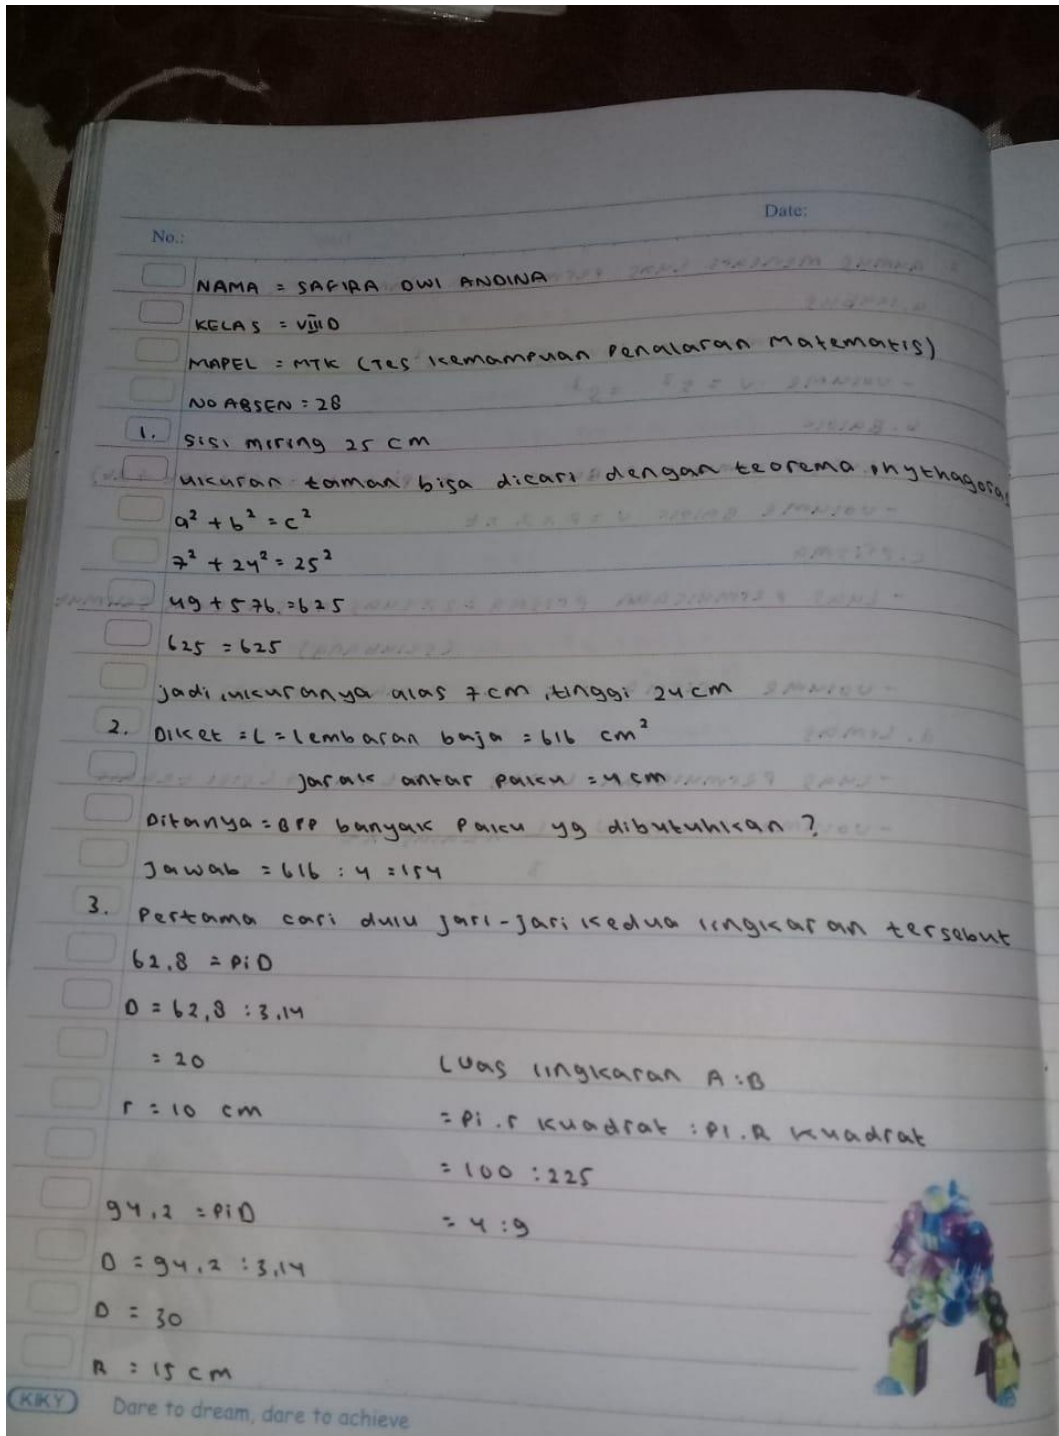 No.:
Date:
NAMA = SAFIRA DWI ANDINA
KELAS = VIII D
MAPEL = MTK (Tes Kemampuan Penalaran Matematis)
NO ABSEN = 28
1. sisi miring 25 cm
ukuran taman bisa dicari dengan teorema phythagoras
a² + b² = c²
7² + 24² = 25²
49 + 576 = 625
625 = 625
jadi, ukuranya alas 7 cm, tinggi 24 cm
2. Diket = L = lembaran baja = 616 cm²
Jarak antar paku = 4 cm
Ditanya = BRP banyak paku yg dibutuhkan?
Jawab = 616 : 4 = 154
3. Pertama cari dulu jari-jari kedua lingkaran tersebut
62,8 = Pi D
D = 62,8 : 3,14
= 20
r = 10 cm
94,2 = Pi D
D = 94,2 : 3,14
D = 30
R = 15 cm
Luas lingkaran A : B
= Pi . r kuadrat : Pi . R kuadrat
= 100 : 225
= 4 : 9
KIKY
Dare to dream, dare to achieve